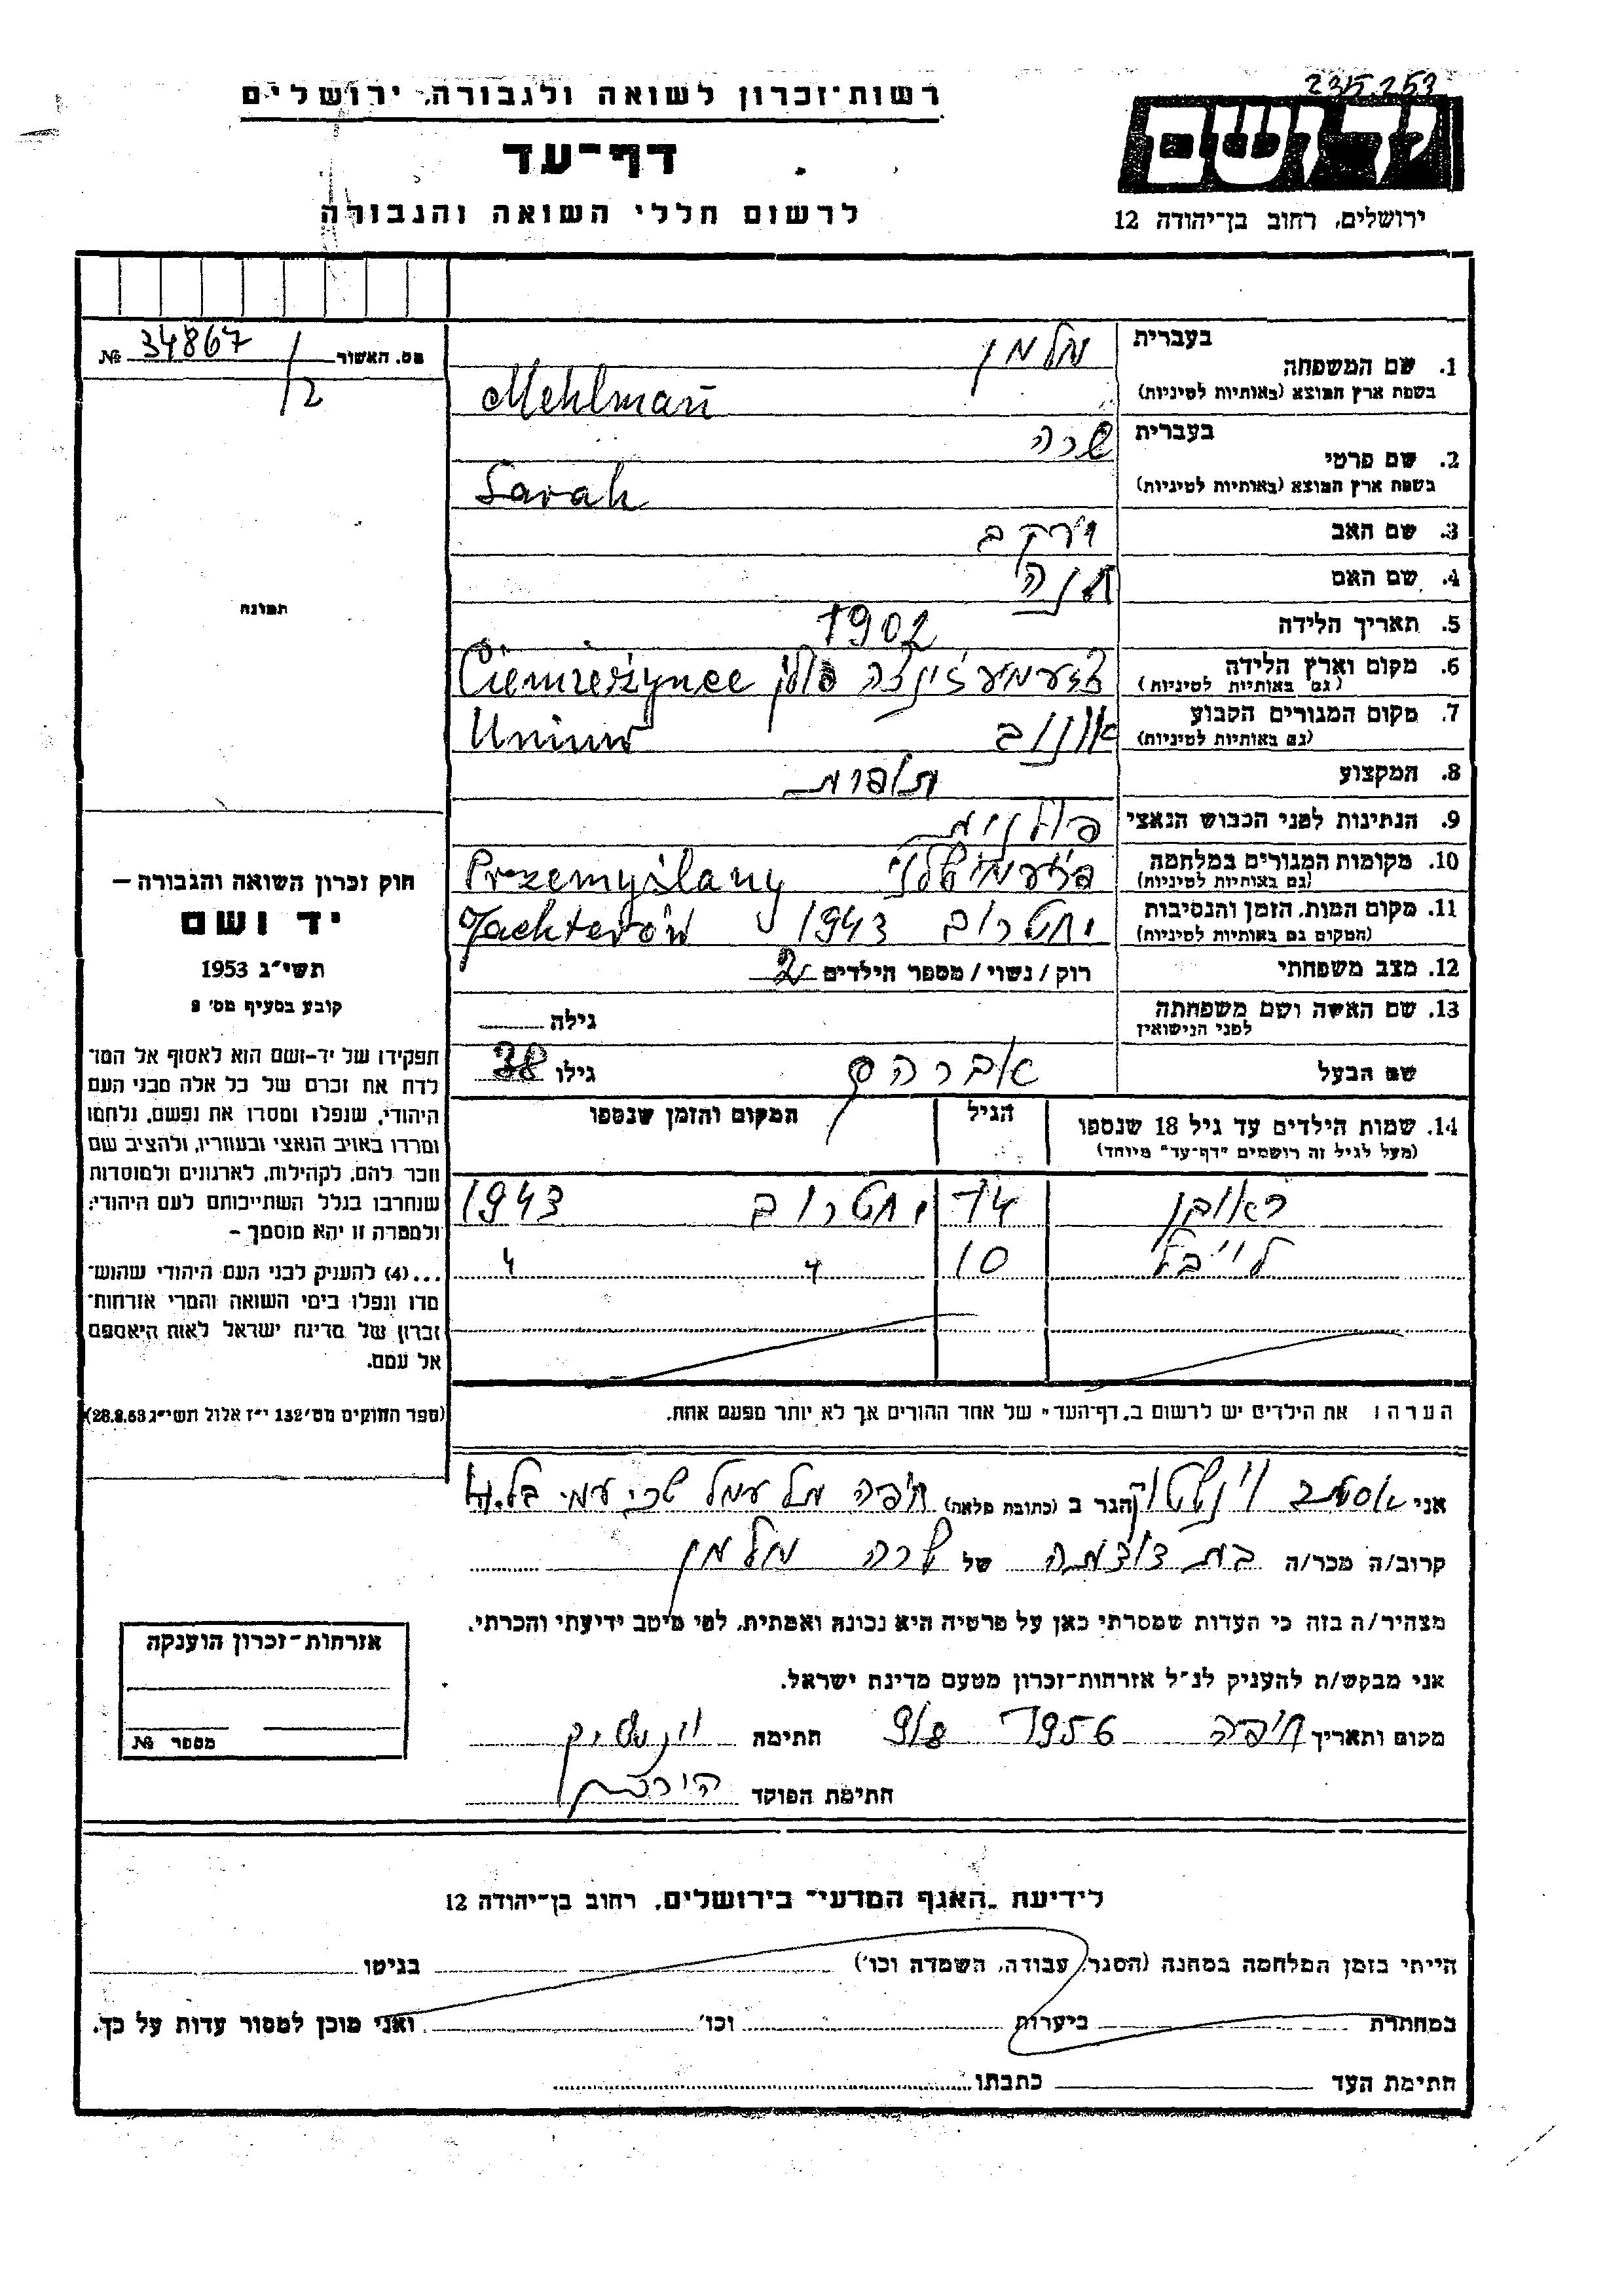 רשות־זכרון לשואה ולגבורה, ירושלים
דף־עד
לרשום חללי השואה והגבורה
235253
יד ושם
ירושלים, רחוב בן־יהודה 12
מס. האשור 34867/2 №
תמונה
1. שם המשפחה בעברית מלמן
בשפת ארץ המוצא (באותיות לטיניות) Mehlman
2. שם פרטי בעברית שרה
בשפת ארץ המוצא (באותיות לטיניות) Sarah
3. שם האב יעקב
4. שם האם חנה
5. תאריך הלידה 1902
6. מקום וארץ הלידה פולין
(גם באותיות לטיניות) Ciemierzynce
7. מקום המגורים הקבוע אוניוב
(גם באותיות לטיניות) Uniow
8. המקצוע תופרת
9. הנתינות לפני הכבוש הנאצי פולנית
10. מקומות המגורים במלחמה
(גם באותיות לטיניות) Przemyślany
11. מקום המות, הזמן והנסיבות יחטרוב 1943
(המקום גם באותיות לטיניות) Jachterów
12. מצב משפחתי רוק / נשוי / מספר הילדים 2
13. שם האשה ושם משפחתה לפני הנישואין גילה
שם הבעל אברהם גילו 38
14. שמות הילדים עד גיל 18 שנספו הגיל המקום והזמן שנספו
(מעל לגיל זה רושמים "דף־עד" מיוחד)
ראובן 14 יחטרוב 1943
לייבל 10 " "
הערה: את הילדים יש לרשום ב"דף־העד" של אחד ההורים אך לא יותר מפעם אחת.
חוק זכרון השואה והגבורה –
יד ושם
תשי"ג 1953
קובע בסעיף מס' 2
תפקידו של יד-ושם הוא לאסוף אל המו־
לדת את זכרם של כל אלה מבני העם
היהודי, שנפלו ומסרו את נפשם, נלחמו
ומרדו באויב הנאצי ובעוזריו, ולהציב שם
וזכר להם, לקהילות, לארגונים ולמוסדות
שנחרבו בגלל השתייכותם לעם היהודי;
ולמטרה זו יהא מוסמך –
...(4) להעניק לבני העם היהודי שהוש־
מדו ונפלו בימי השואה והמרי אזרחות־
זכרון של מדינת ישראל לאות היאספם
אל עמם.
(ספר החוקים מס' 132 י"ז אלול תשי"ג 28.8.53)
אני הגר ב (כתובת מלאה) חיפה
קרוב/ה מכר/ה בת דודתה של שרה מלמן
מצהיר/ה בזה כי העדות שמסרתי כאן על פרטיה היא נכונה ואמתית, לפי מיטב ידיעתי והכרתי.
אני מבקש/ת להעניק לנ"ל אזרחות־זכרון מטעם מדינת ישראל.
מקום ותאריך חיפה 1956 9/8 חתימה
חתימת הפוקד
אזרחות־זכרון הוענקה
מספר №
לידיעת "האגף המדעי" בירושלים, רחוב בן־יהודה 12
הייתי בזמן המלחמה במחנה (הסגר, עבודה, השמדה וכו') בגיטו
במחתרת ביערות וכו' ואני מוכן למסור עדות על כך.
חתימת העד כתבתו